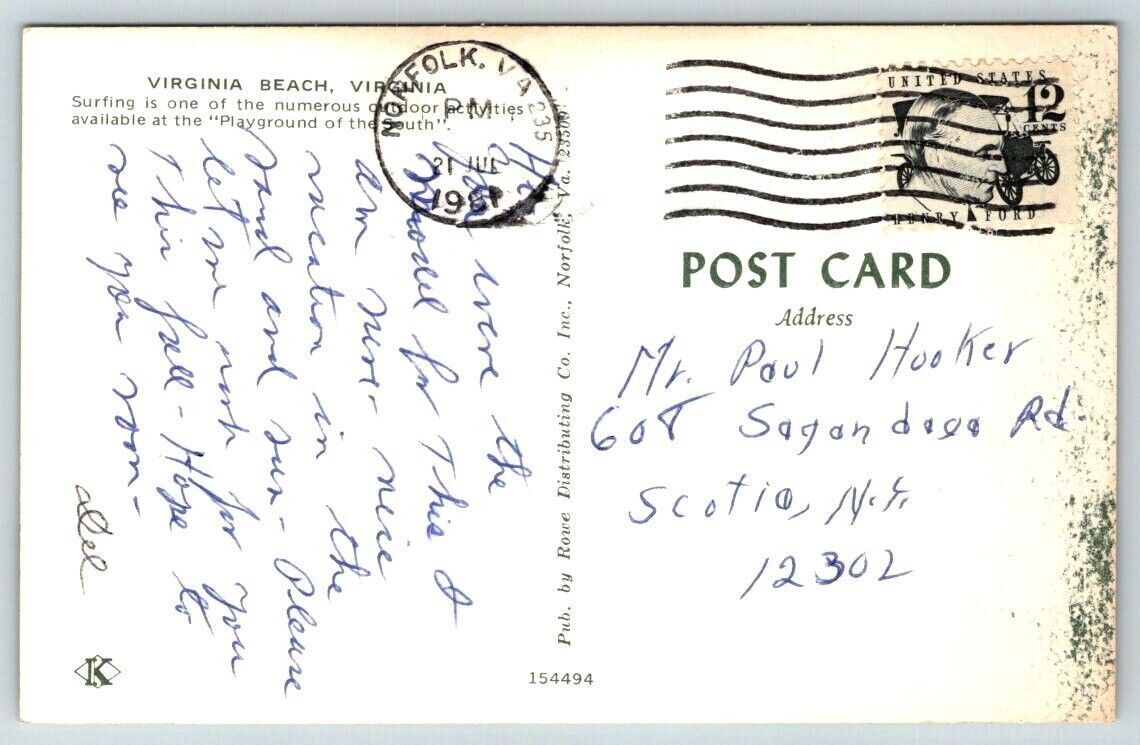 VIRGINIA BEACH, VIRGINIA
Surfing is one of the numerous outdoor activities
available at the "Playground of the South".
NORFOLK, VA 235
PM
21 JUL
UNITED STATES
12
CENTS
HENRY FORD
were the
model for This I
am sure - nice
vacation in the
sand and sun - Please
let me work for you
This fall - Hope to
see you soon -
Del
Pub. by Rowe Distributing Co. Inc., Norfolk, Va. 23509
POST CARD
Address
Mr. Paul Hooker
608 Sagandaga Rd.
Scotia, N.Y.
12302
K
154494